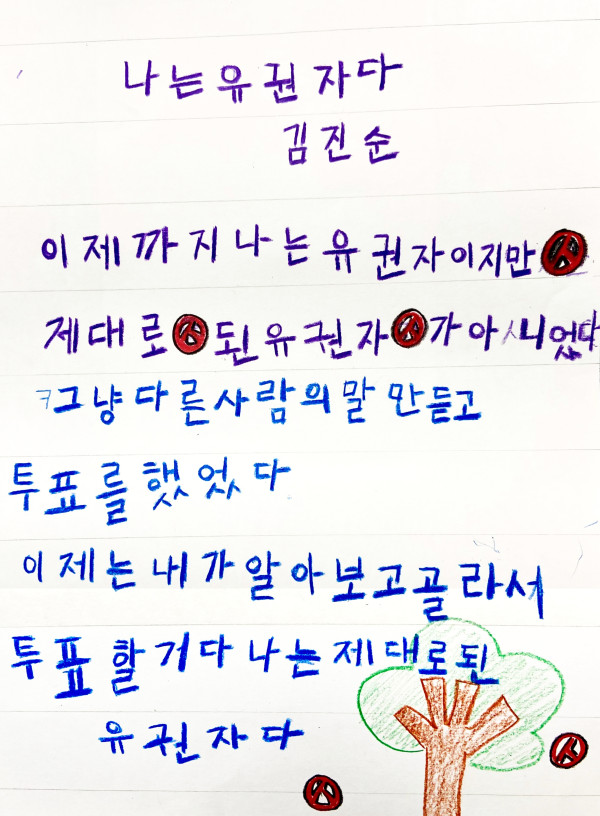 나는유권자다
김진순
이제까지나는유권자이지만
제대로된유권자가아니었다
그냥다른사람의말만듣고
투표를했었다
이제는내가알아보고골라서
투표할거다나는제대로된
유권자다